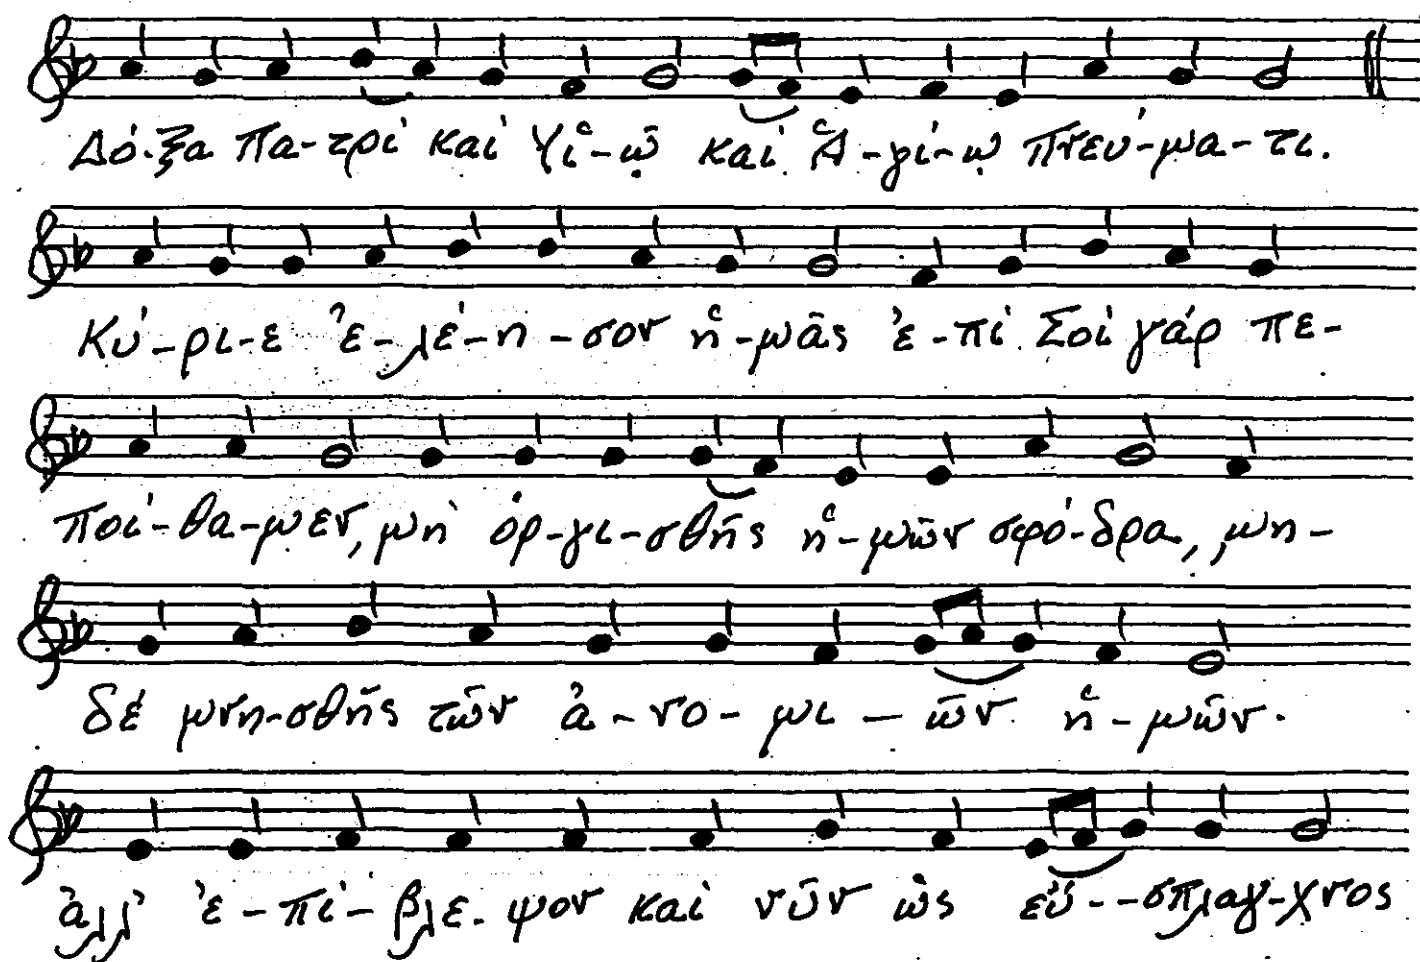 Δό-ξα Πα-τρί καί Υἱ-ῷ καί Ἁ-γί-ῳ Πνεύ-μα-τι.
Κύ-ρι-ε ἐ-λέ-η-σον ἡ-μᾶς ἐ-πί Σοί γάρ πε-
ποί-θα-μεν, μή ὀρ-γι-σθῆς ἡ-μῶν σφό-δρα, μη-
δέ μνη-σθῆς τῶν ἀ-νο-μι-ῶν ἡ-μῶν.
ἀλλ' ἐ-πί-βλε-ψον καί νῦν ὡς εὔ--σπλαγ-χνος